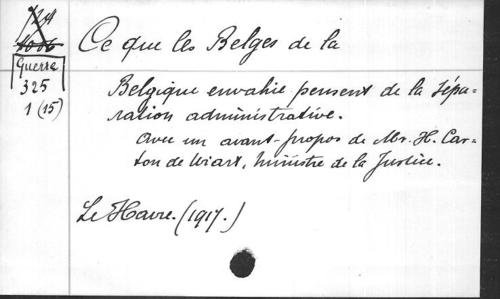 Guerre
325
1 (15)
Ce que les Belges de la
Belgique envahie pensent de la sépa-
ration administrative.
Avec un avant-propos de Mr. H. Car-
ton de Wiart, ministre de la Justice.
Le Havre. (1917.)